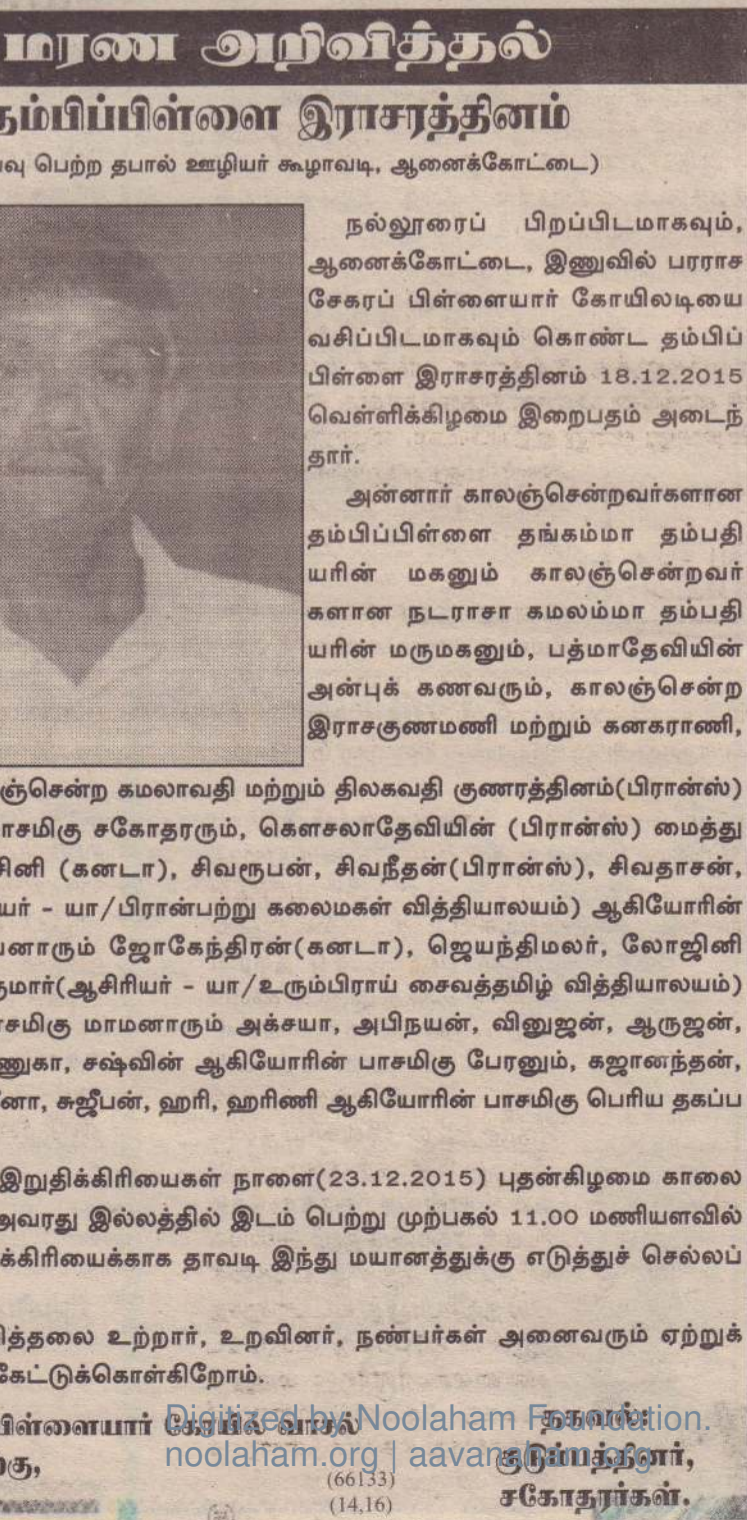 மரண அறிவித்தல்
தம்பிப்பிள்ளை இராசரத்தினம்
வு பெற்ற தபால் ஊழியர் கூழாவடி, ஆனைக்கோட்டை)
நல்லூரைப் பிறப்பிடமாகவும்,
ஆனைக்கோட்டை, இணுவில் பரராச
சேகரப் பிள்ளையார் கோயிலடியை
வசிப்பிடமாகவும் கொண்ட தம்பிப்
பிள்ளை இராசரத்தினம் 18.12.2015
வெள்ளிக்கிழமை இறைபதம் அடைந்
தார்.
அன்னார் காலஞ்சென்றவர்களான
தம்பிப்பிள்ளை தங்கம்மா தம்பதி
யரின் மகனும் காலஞ்சென்றவர்
களான நடராசா கமலம்மா தம்பதி
யரின் மருமகனும், பத்மாதேவியின்
அன்புக் கணவரும், காலஞ்சென்ற
இராசகுணமணி மற்றும் கனகராணி,
ஞ்சென்ற கமலாவதி மற்றும் திலகவதி குணரத்தினம்(பிரான்ஸ்)
ாசமிகு சகோதரரும், கௌசலாதேவியின் (பிரான்ஸ்) மைத்து
சினி (கனடா), சிவரூபன், சிவநீதன்(பிரான்ஸ்), சிவதாசன்,
யர் – யா/பிரான்பற்று கலைமகள் வித்தியாலயம்) ஆகியோரின்
பனாரும் ஜோகேந்திரன்(கனடா), ஜெயந்திமலர், லோஜினி
குமார்(ஆசிரியர் – யா/உரும்பிராய் சைவத்தமிழ் வித்தியாலயம்)
சமிகு மாமனாரும் அக்சயா, அபிநயன், வினுஜன், ஆருஜன்,
ணுகா, சஷ்வின் ஆகியோரின் பாசமிகு பேரனும், கஜானந்தன்,
னா, சுஜீபன், ஹரி, ஹரிணி ஆகியோரின் பாசமிகு பெரிய தகப்ப
இறுதிக்கிரியைகள் நாளை(23.12.2015) புதன்கிழமை காலை
அவரது இல்லத்தில் இடம் பெற்று முற்பகல் 11.00 மணியளவில்
க்கிரியைக்காக தாவடி இந்து மயானத்துக்கு எடுத்துச் செல்லப்
ித்தலை உற்றார், உறவினர், நண்பர்கள் அனைவரும் ஏற்றுக்
கேட்டுக்கொள்கிறோம்.
பிள்ளையார் கோயில் வாசல்
கு,
தகவல்:
குடும்பத்தினர்,
சகோதரர்கள்.
(66133)
(14,16)
Digitized by Noolaham Foundation.
noolaham.org | aavanaham.org